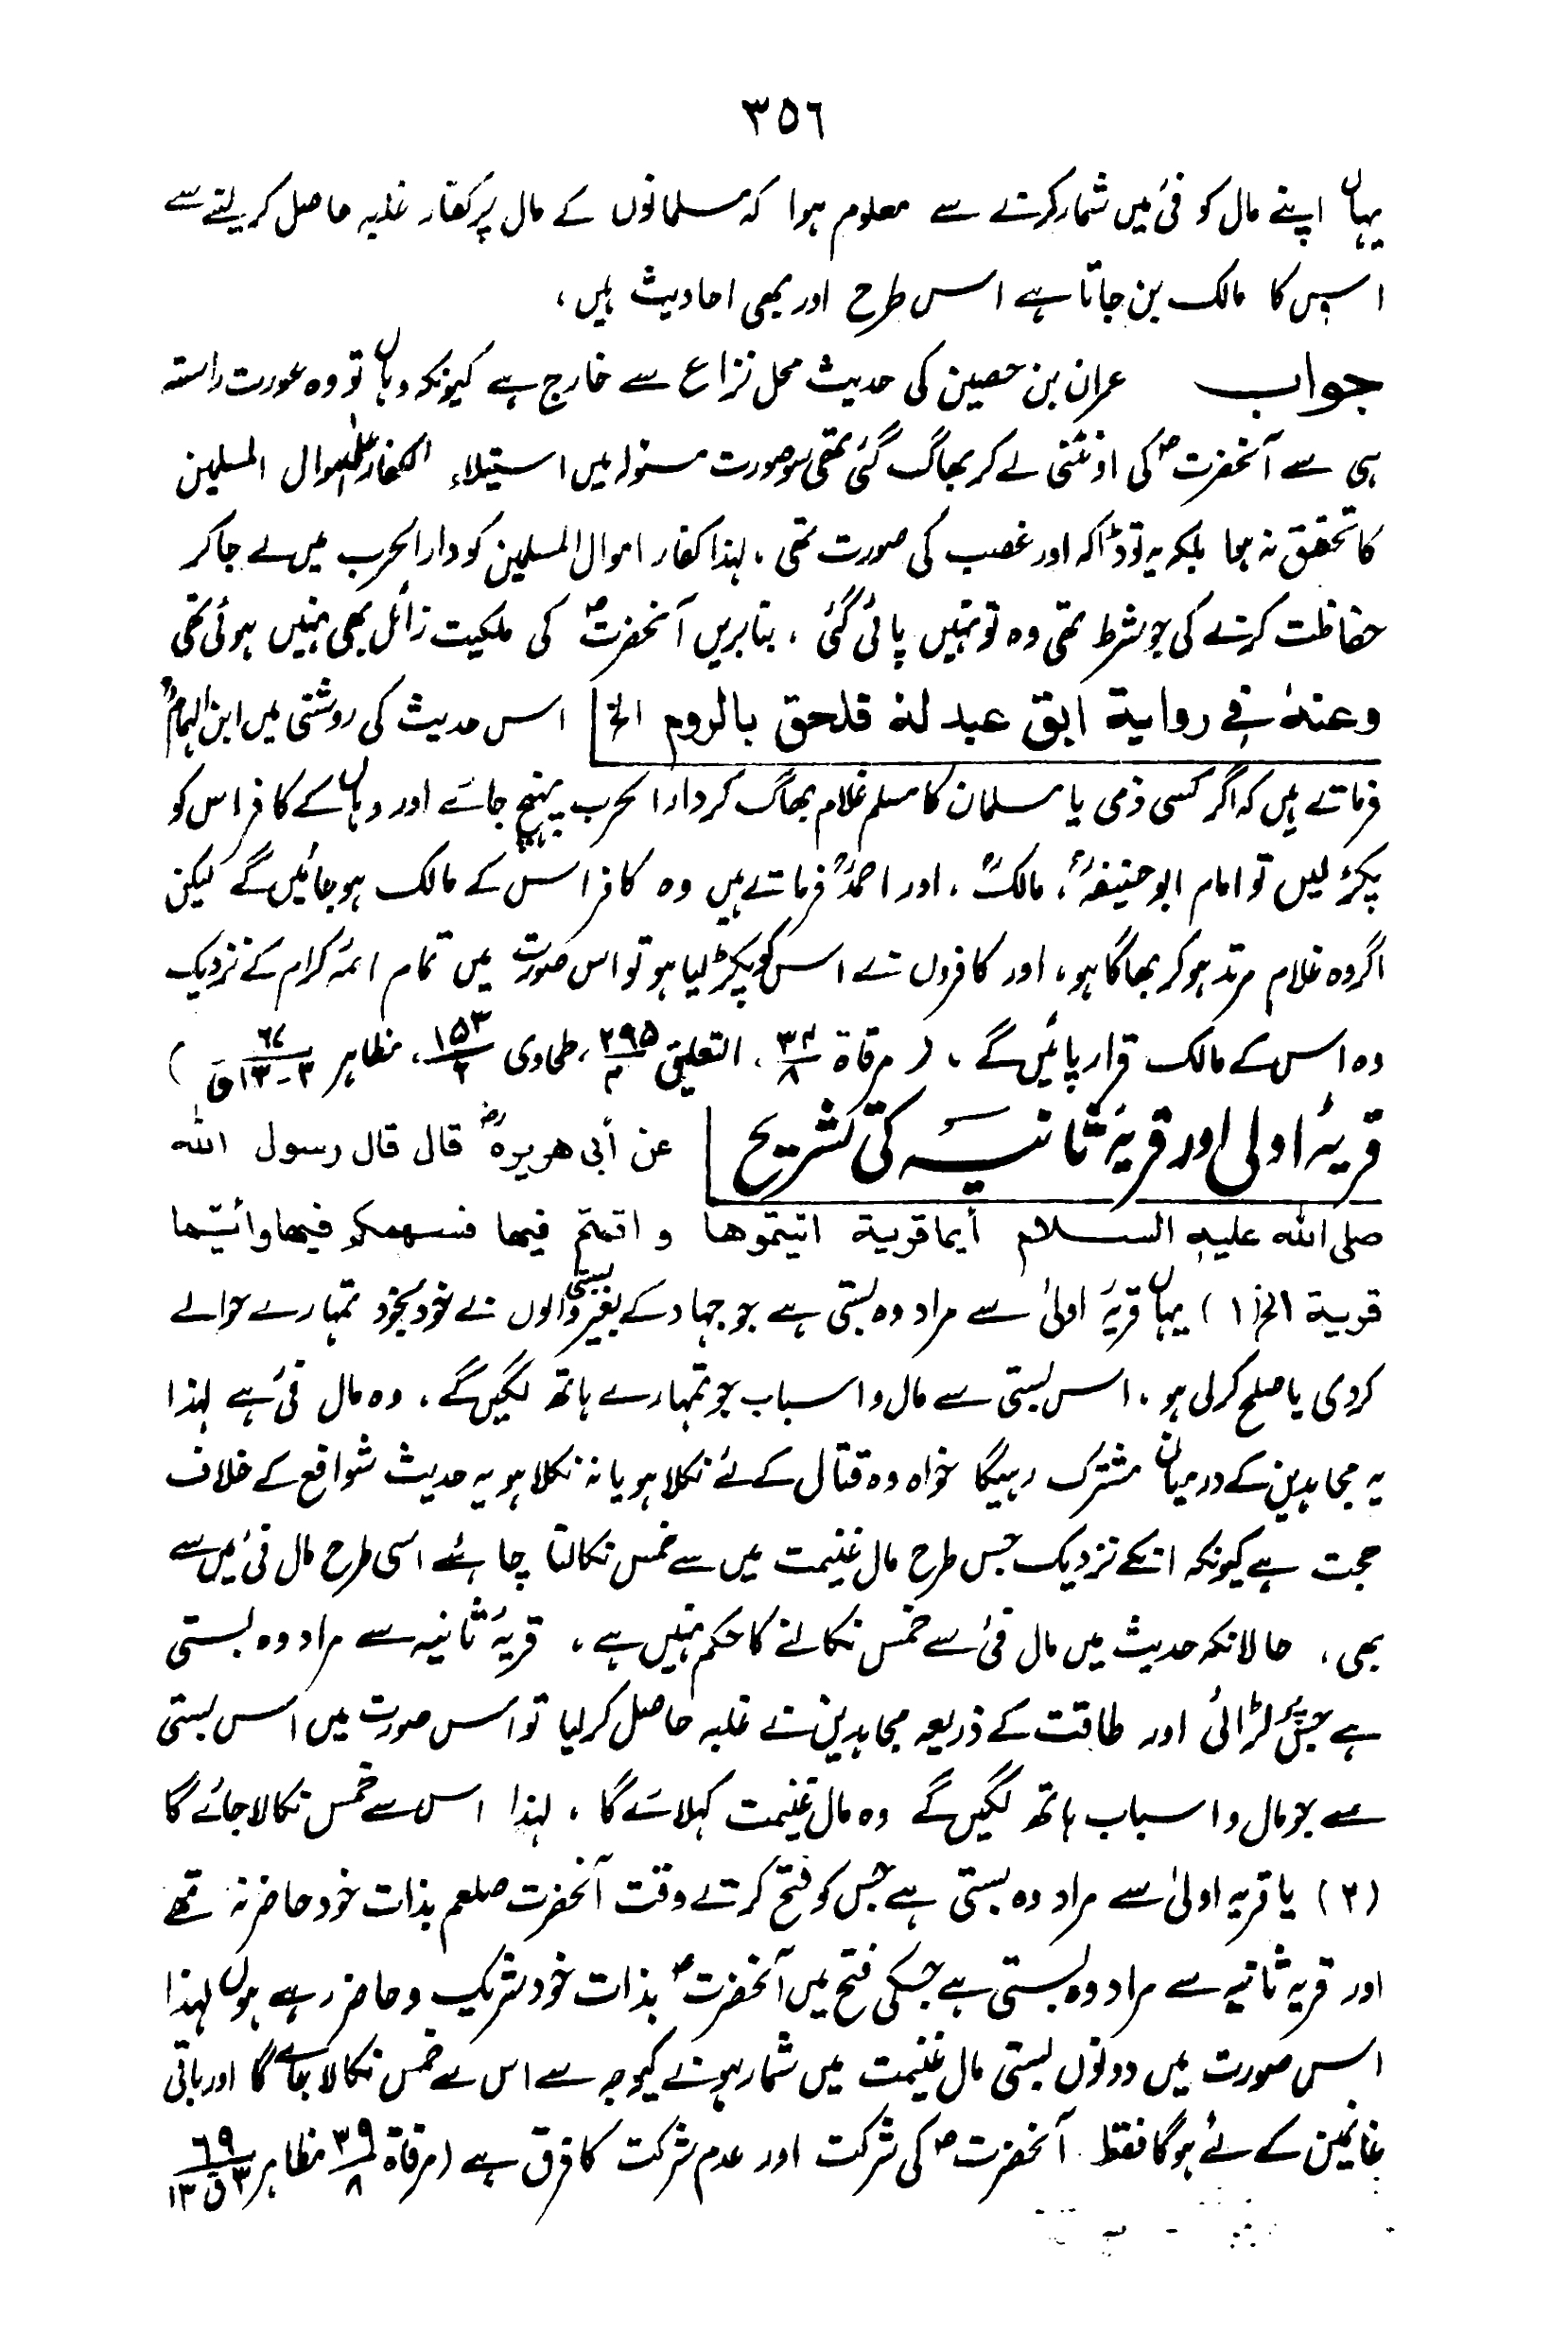 ٣٥٦
یہاں اپنے مال کو فئ میں شمار کرنے سے معلوم ہوا کہ مسلمانوں کے مال پر کفار غلبہ حاصل کرلینے سے
اس کا مالک بن جاتا ہے اس طرح اور بھی احادیث ہیں،
جواب عمران بن حصین کی حدیث محل نزاع سے خارج ہے کیونکہ وہاں تو وہ عورت راستہ
ہی سے آنحضرت ؐ کی اونٹنی لے کر بھاگ گئی تھی سو صورت مسئولہ میں استیلاء الکفار علی اموال المسلمین
کا تحقق نہ ہوا بلکہ یہ تو ڈاکہ اور غصب کی صورت تھی، لہذا کفار اموال المسلمین کو دارالحرب میں لے جا کر
حفاظت کرنے کی جو شرط تھی وہ تو نہیں پائی گئی، بنابریں آنحضرت ؐ کی ملکیت زائل بھی نہیں ہوئی تھی
وعنہ فی روایة ابق عبد له فلحق بالروم الخ اس حدیث کی روشنی میں ابن الہمامؒ
فرماتے ہیں کہ اگر کسی ذمی یا مسلمان کا مسلم غلام بھاگ کر دارالحرب پہنچ جائے اور وہاں کے کافر اس کو
پکڑ لیں تو امام ابوحنیفہؒ، مالکؒ، اور احمدؒ فرماتے ہیں وہ کافر اس کے مالک ہوجائیں گے لیکن
اگر وہ غلام مرتد ہو کر بھاگا ہو، اور کافروں نے اس کو پکڑ لیا ہو تو اس صورت میں تمام ائمہ کرام کے نزدیک
وہ اس کے مالک قرار پائیں گے، (مرقاة ٣٤/٨، التعلیق ٢٩٥/٤، طحاوی ١٥٣/٢، مظاہر ٦٧/٣-١٣ق)
قریۂ اولی اور قریۂ ثانیہ کی تشریح عن أبی هریرہؓ قال قال رسول الله
صلی الله علیه السلام أیما قریة اتیتموها و اقمتم فیها فسهمکم فیها وأیما
قریة الخ (١) یہاں قریۂ اولیٰ سے مراد وہ بستی ہے جو جہاد کے بغیر بستی والوں نے خود بخود تمہارے حوالے
کردی یا صلح کرلی ہو، اس بستی سے مال و اسباب جو تمہارے ہاتھ لگیں گے، وہ مال فئ ہے لہذا
یہ مجاہدین کے درمیان مشترک رہیگا خواہ وہ قتال کے لئے نکلا ہو یا نہ نکلا ہو یہ حدیث شوافع کے خلاف
حجت ہے کیونکہ انکے نزدیک جس طرح مال غنیمت میں سے خمس نکالنا چاہئے اسی طرح مال فئ میں سے
بھی، حالانکہ حدیث میں مال فئ سے خمس نکالنے کا حکم نہیں ہے، قریۂ ثانیہ سے مراد وہ بستی
ہے جس پر لڑائی اور طاقت کے ذریعہ مجاہدین نے غلبہ حاصل کرلیا تو اس صورت میں اس بستی
سے جو مال و اسباب ہاتھ لگیں گے وہ مال غنیمت کہلائے گا، لہذا اس سے خمس نکالا جائے گا
(٢) یا قریہ اولیٰ سے مراد وہ بستی ہے جس کو فتح کرتے وقت آنحضرت صلعم بذات خود حاضر نہ تھے
اور قریہ ثانیہ سے مراد وہ بستی ہے جسکی فتح میں آنحضرت ؐ بذات خود شریک و حاضر رہے ہوں لہذا
اس صورت میں دونوں بستی مال غنیمت میں شمار ہونے کیوجہ سے اس سے خمس نکالا جائے گا اور باقی
غانمین کے لئے ہوگا فقط آنحضرت ؐ کی شرکت اور عدم شرکت کا فرق ہے (مرقاة ٣٩/٨ مظاہر ٦٩/٣ ق ١٣